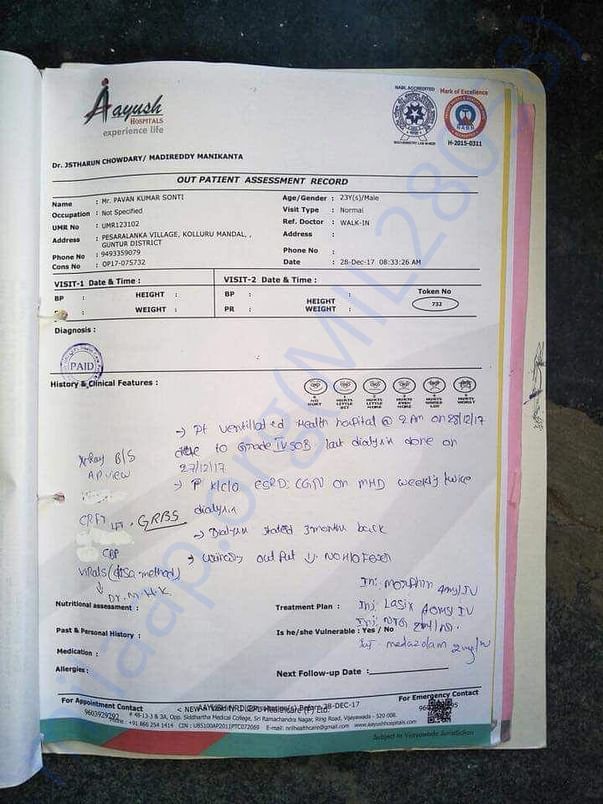 Aayush
HOSPITALS
experience life
NABL ACCREDITED
Mark of Excellence
H-2015-0311
Dr. JSTHARUN CHOWDARY/ MADIREDDY MANIKANTA
OUT PATIENT ASSESSMENT RECORD
Name : Mr. PAVAN KUMAR SONTI
Age/Gender : 23Y(s)/Male
Occupation : Not Specified
Visit Type : Normal
UMR No : UMR123102
Ref. Doctor : WALK-IN
Address : PESARALANKA VILLAGE, KOLLURU MANDAL, , GUNTUR DISTRICT
Address :
Phone No : 9493359079
Phone No :
Cons No : OP17-075732
Date : 28-Dec-17 08:33:26 AM
VISIT-1 Date & Time :
VISIT-2 Date & Time :
Token No
732
BP : HEIGHT :
BP : HEIGHT :
: WEIGHT :
PR : WEIGHT :
Diagnosis :
PAID
History & Clinical Features :
→ Pt ventillated Health hospital @ 2 Am on 28/12/17
due to Grade IV SOB last dialysis done on
27/12/17
X-Ray B/S
AP VIEW
→ P K/C/O ESRD: CGN on MHD weekly twice
dialysis
GRBS
→ Dialysis stated 3 months back
CBP
→ out put ↓. NO H/O Fever
Virals (Elisa method)
Inj: morphin 4mg/IV
Nutritional assessment :
Treatment Plan :
Inj: Lasix 40mg IV
Past & Personal History :
Is he/she Vulnerable : Yes / No
Inj medazolam 2mg/IV
Medication :
Allergies :
Next Follow-up Date :
For Appointment Contact
For Emergency Contact
9603929292
# 48-13-3 & 3A, Opp. Siddhartha Medical College, Sri Ramachandra Nagar, Ring Road, Vijayawada - 520 008.
Phone : +91 866 254 1414 CIN : U85100AP2011PTC072069 E-mail: nrihealthcare@gmail.com www.aayushhospitals.com
Subject to Vijayawada Jurisdiction